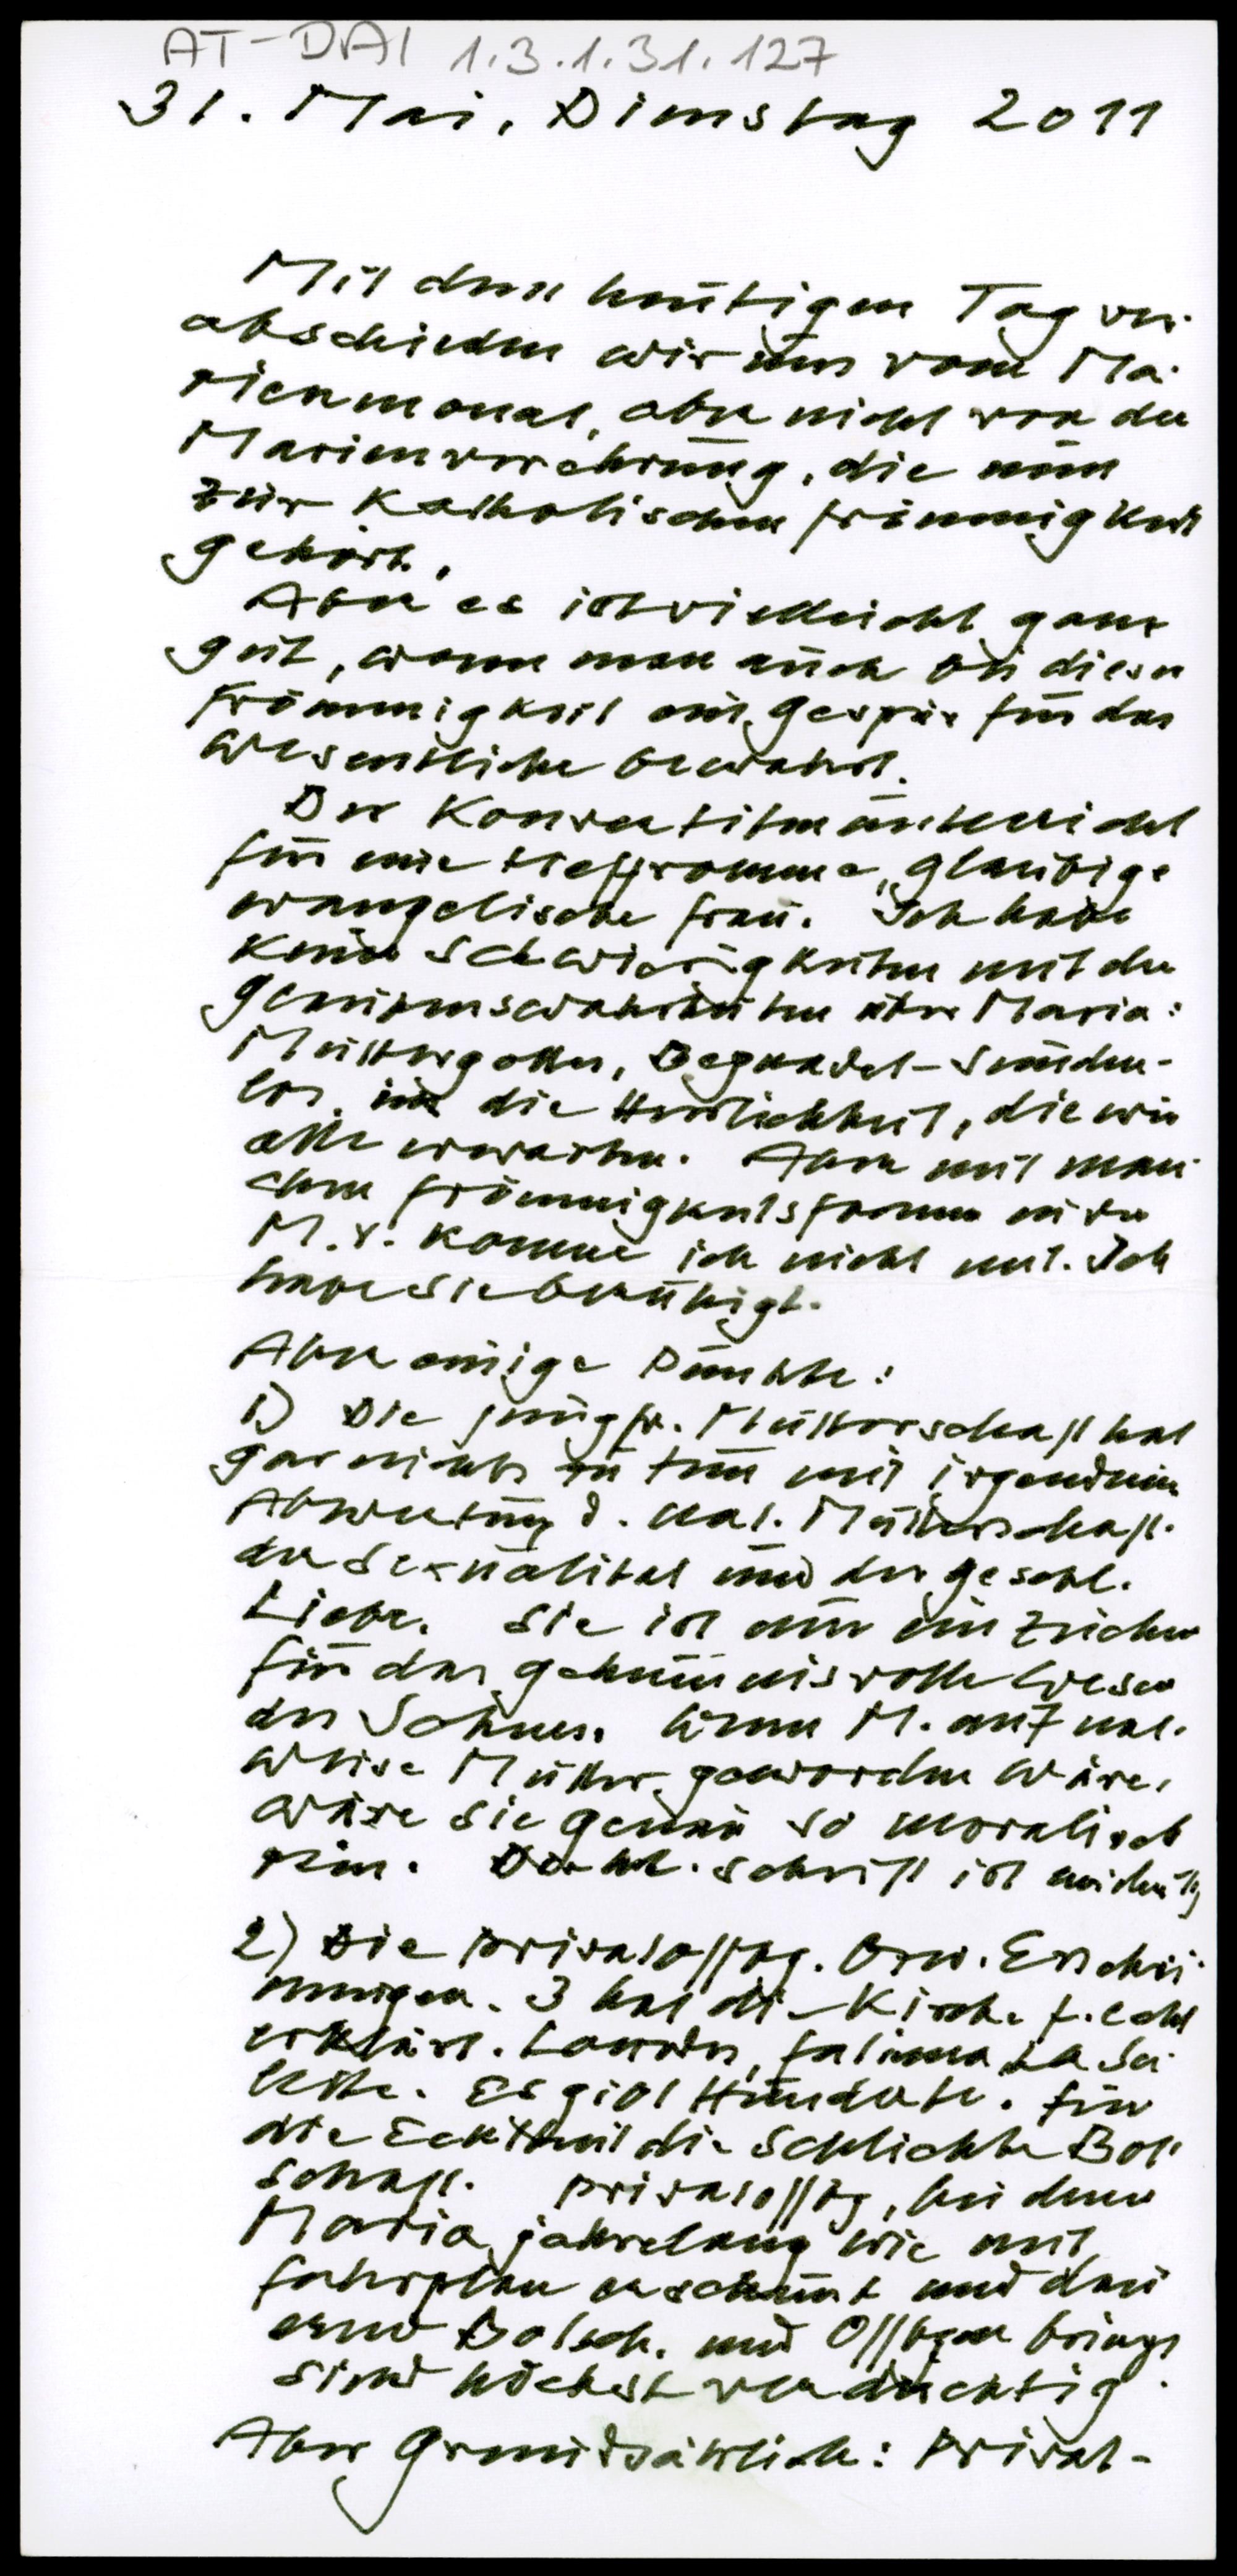 AT-DAI 1.3.1.31.127
31. Mai, Dienstag 2011
Mit dem heutigen Tag ver-
abschieden wir uns vom Ma-
rienmonat, aber nicht von der
Marienverehrung, die nun
zur katholischen Frömmigkeit
gehört.
Aber es ist vielleicht ganz
gut, wenn man auch bei dieser
Frömmigkeit ein Gespür für das
Wesentliche bewahrt.
Der Konvertitenunterricht
für eine tieffromme, gläubige
evangelische Frau. Ich habe
keine Schwierigkeiten mit den
Glaubenswahrheiten über Maria:
Muttergottes, Begnadet-Sünden-
los, in die Herrlichkeit, die wir
alle erwarten. Aber mit man-
chen Frömmigkeitsformen in der
M.V. komme ich nicht mit. Ich
habe sie beruhigt.
Aber einige Punkte:
1) Die jungfr. Mutterschaft hat
gar nichts zu tun mit irgendeiner
Abwertung d. nat. Mutterschaft.
der Sexualität und der geschl.
Liebe. Sie ist nur ein Zeichen
für das geheimnisvolle Wesen
des Sohnes. Wenn M. auf nat.
Weise Mutter geworden wäre,
wäre sie genau so moralisch
rein. Die hl. Schrift ist eindeutig
2) Die Privatoffbg. bzw. Erschei-
nungen. 3 hat die Kirche f. echt
erklärt. Lourdes, Fatima, La Sa-
lette. Es gibt Hunderte. Für
die Echtheit die schlichte Bot-
schaft. Privatoffbg, bei denen
Maria jahrelang wie mit
Fahrplan erscheint und dau-
ernd Botsch. und Offbgen bringt
sind höchst verdächtig.
Aber grundsätzlich: Privat-